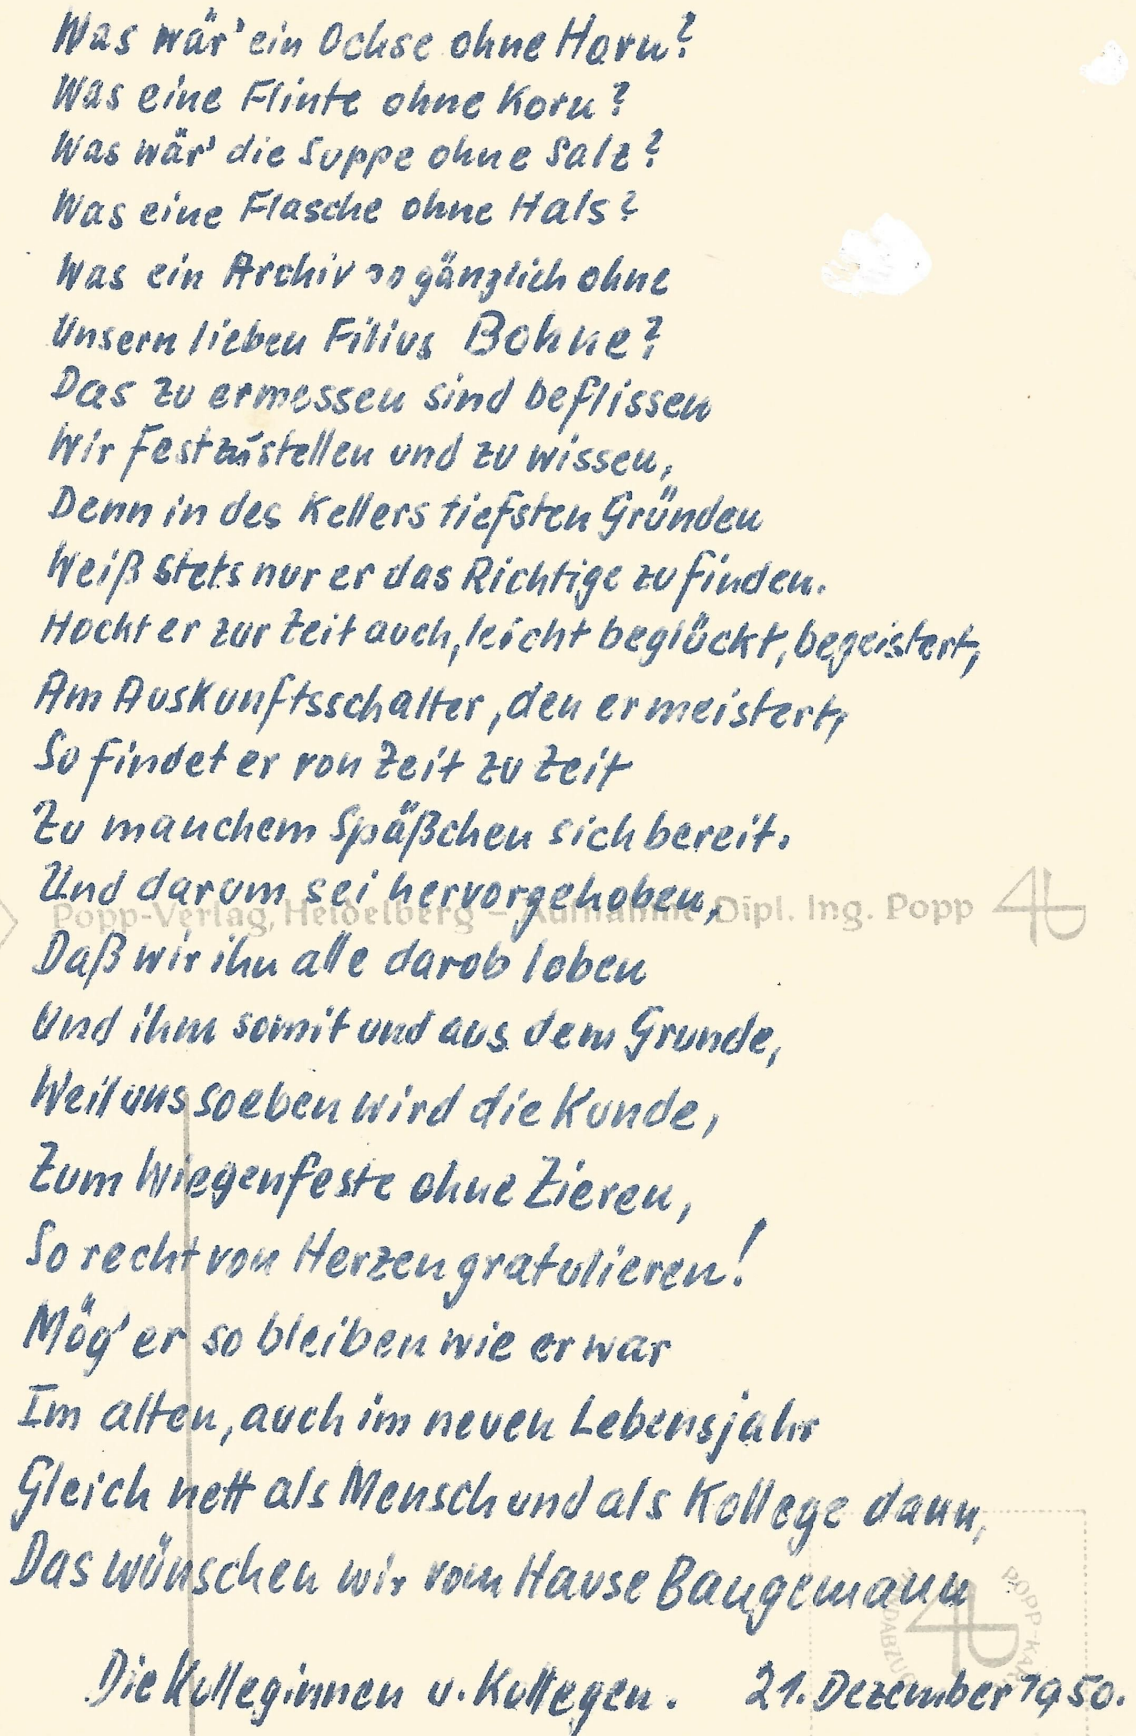 Was wär' ein Ochse ohne Horn?
Was eine Flinte ohne Korn?
Was wär' die Suppe ohne Salz?
Was eine Flasche ohne Hals?
Was ein Archiv so gänzlich ohne
Unsern lieben Filius Bohne?
Das zu ermessen sind beflissen
Wir festzustellen und zu wissen,
Denn in des Kellers tiefsten Gründen
Weiß stets nur er das Richtige zu finden.
Hockt er zur Zeit auch, leicht beglückt, begeistert,
Am Auskunftsschalter, den er meistert,
So findet er von Zeit zu Zeit
Zu manchem Späßchen sich bereit.
Und darum sei hervorgehoben,
Popp-Verlag, Heidelberg – Aufnahme Dipl. Ing. Popp
Daß wir ihn alle darob loben
Und ihm somit und aus dem Grunde,
Weil uns soeben wird die Kunde,
Zum Wiegenfeste ohne Zieren,
So recht von Herzen gratulieren!
Mög' er so bleiben wie er war
Im alten, auch im neuen Lebensjahr
Gleich nett als Mensch und als Kollege dann,
Das wünschen wir vom Hause Baugemann
POPP-KAR
HANDABZUG
Die Kolleginnen u. Kollegen. 21. Dezember 1950.